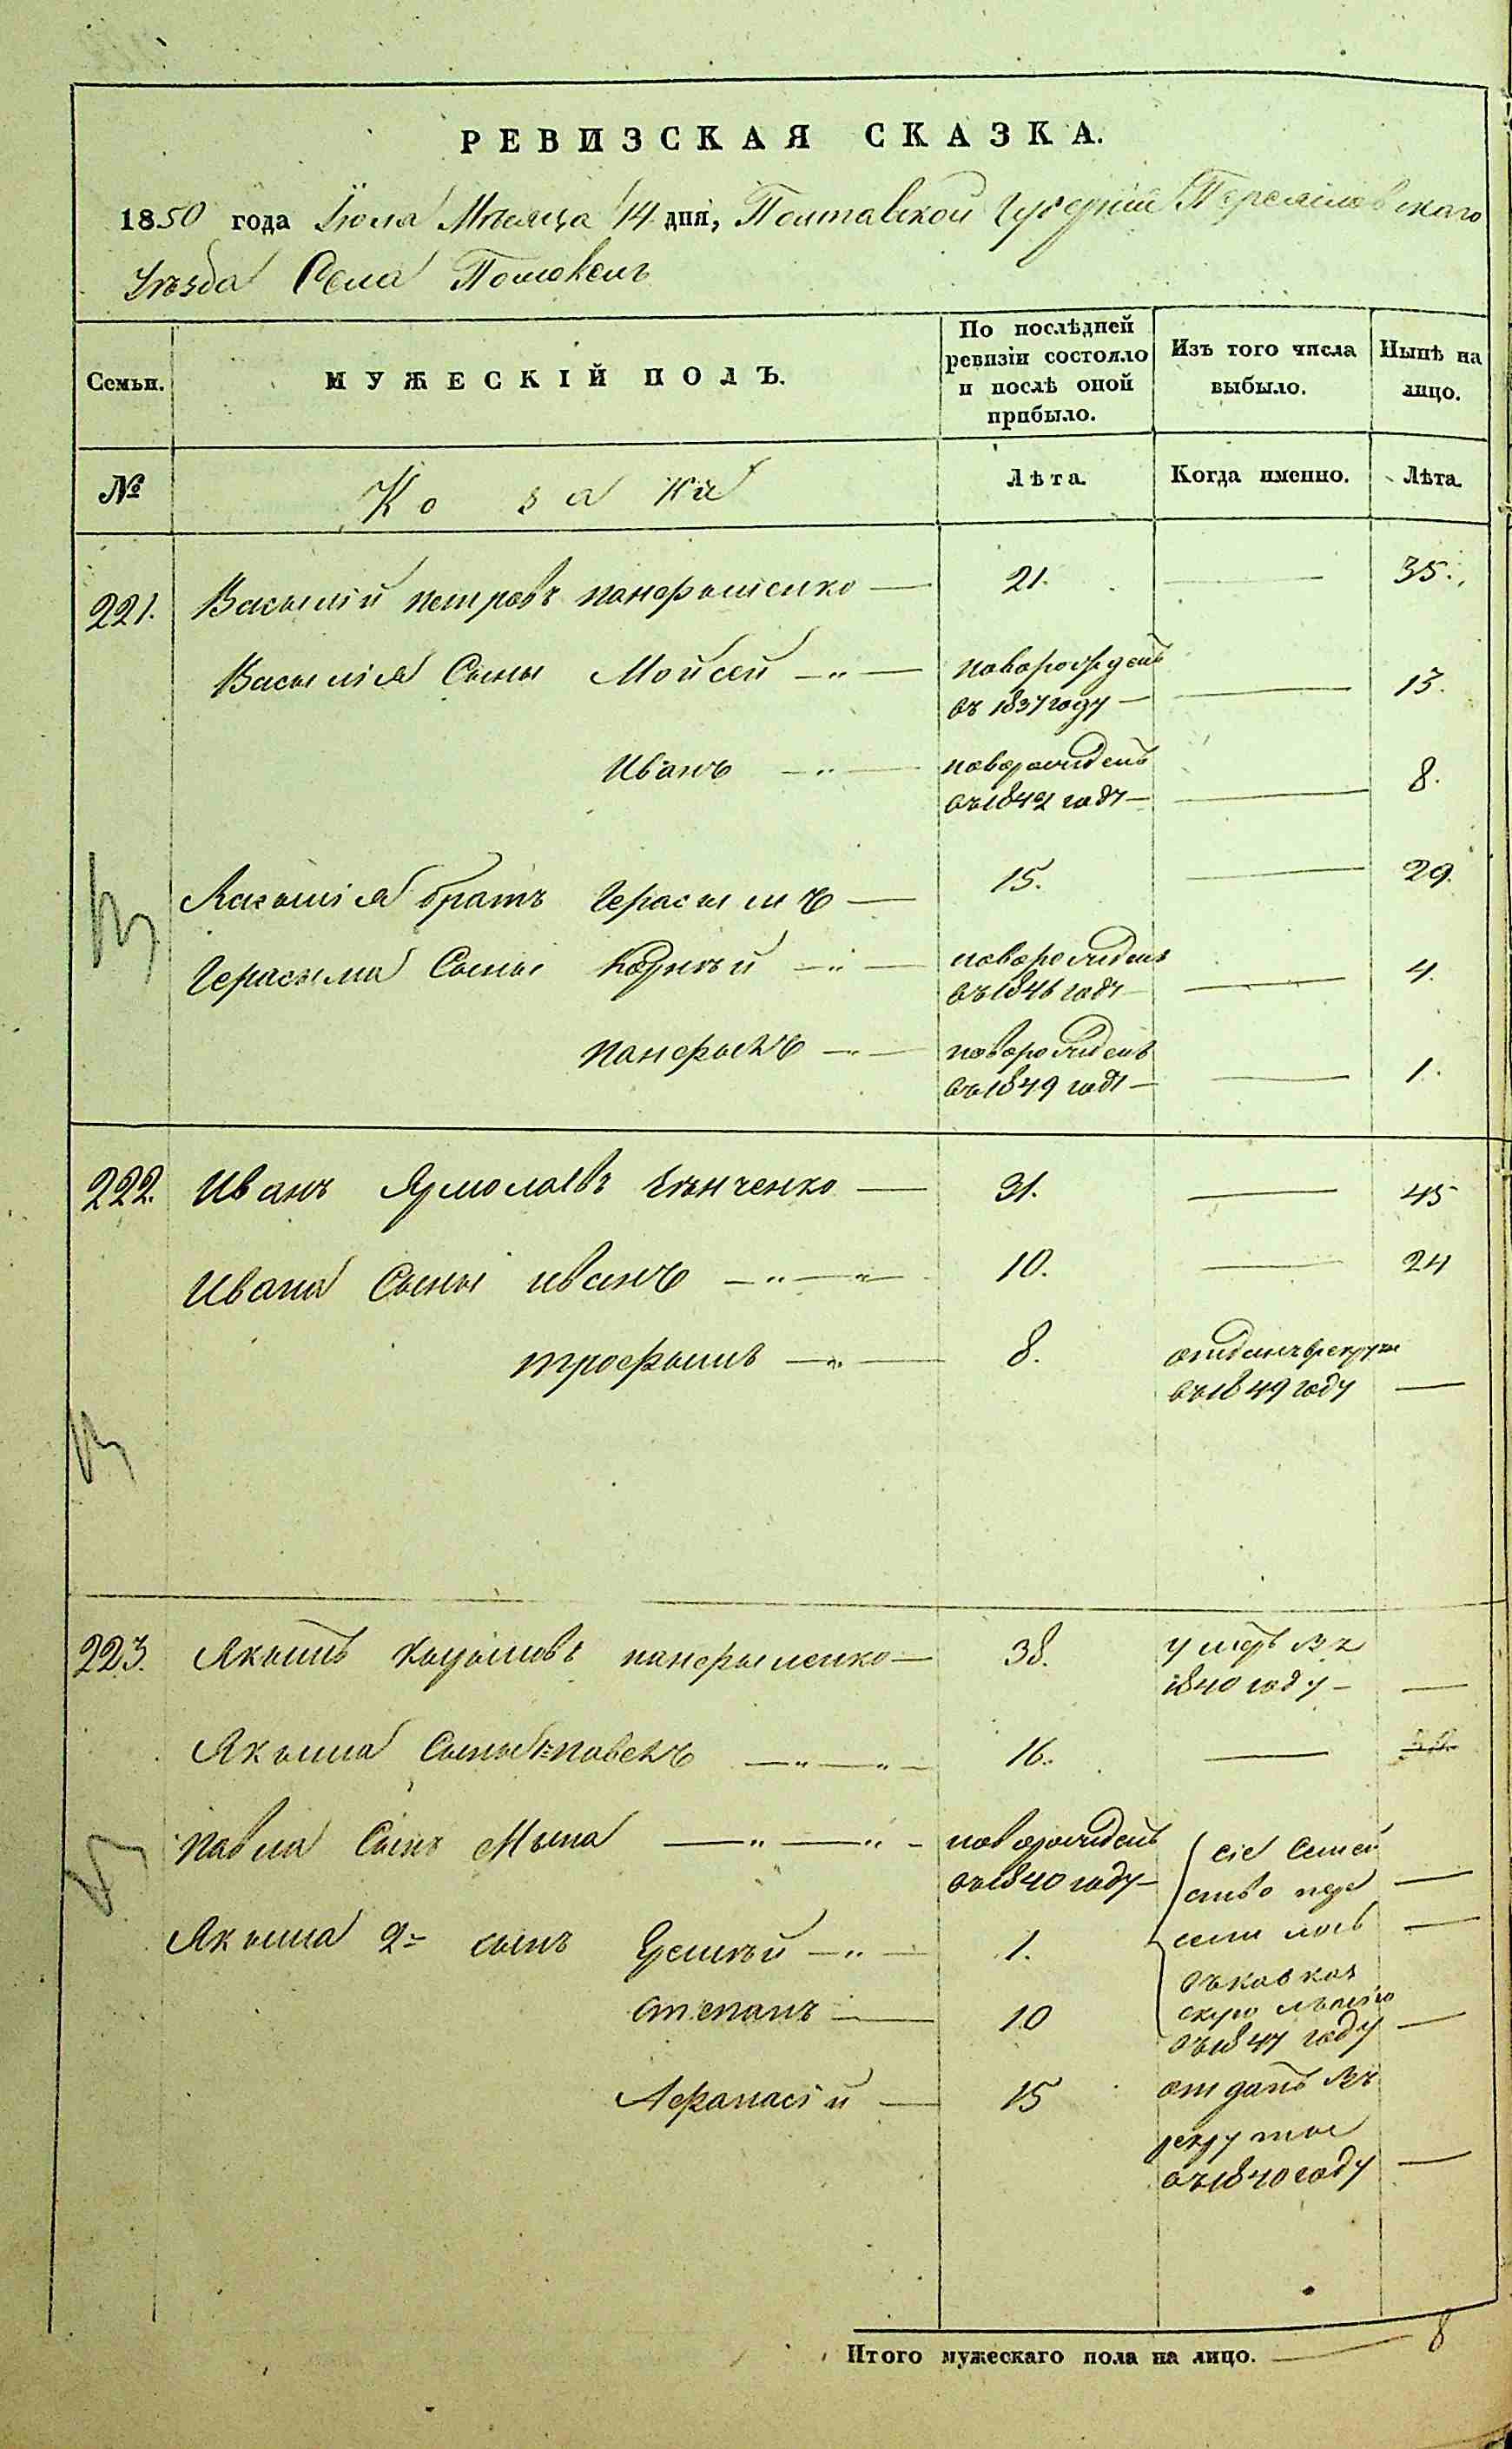 РЕВИЗСКАЯ СКАЗКА.
1850 года Июля Месяца 14 дня, Полтавской Губернии Переяславскаго
Уезда Села Помоклей
Семьи.
МУЖЕСКІЙ ПОЛЪ.
По послѣдней ревизіи состояло и послѣ оной прибыло.
Изъ того числа выбыло.
Нынѣ на лицо.
№
Козаки
Лѣта.
Когда именно.
Лѣта.
221. Васылій петровъ панфыленко — 21. — 35.
Васылія Сыны Мойсей — новорожденъ
въ 1837 году — 13.
Иванъ — новорожденъ
въ 1842 году — 8.
Васылія братъ Герасымъ — 15. — 29.
Герасыма Сыны Корнѣй — новорожденъ
въ 1846 году — 4.
панфылъ — новорожденъ
въ 1849 году — 1.
222. Иванъ Ярмолаевъ — 31. — 45
Ивана Сыны иванъ — 10. — 24
трофымъ — 8. отданъ в рекруты
въ 1849 году —
223. Якымъ панфыленко — 38. умеръ въ
1840 году —
Якыма Сыны 1й павелъ — 16. —
павла Сынъ Мына — новорожденъ
въ 1840 году —
Якыма 2й сынъ Еремѣй — 1.
степанъ — 10
сіе Семей
ство пере
село
въ кавказ
скую
въ 1847 году —
Афанасій — 15 отданъ въ
рекруты
въ 1840 году —
Итого мужескаго пола на лицо. — 8